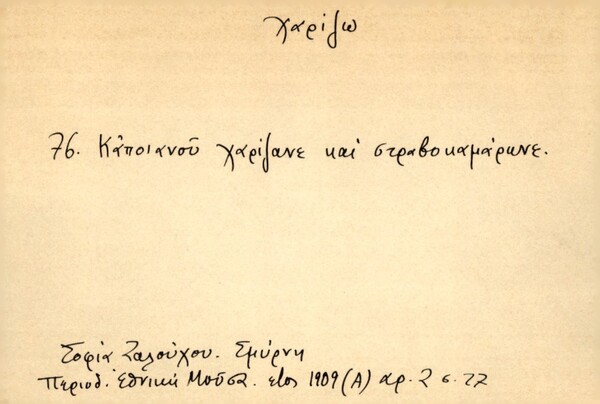 χαρίζω
76. Κἀποιανοῦ χαρίζανε καὶ στραβοκαμάρωνε.
Σοφία Σαλούχου. Σμύρνη
Περιοδ. Ἐθνική Μοῦσα. ετος 1909 (Α) αρ. 2 σ. 22